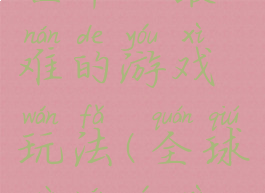 nán de yóu xì
难的游戏
wán fǎ quán qiú
玩法(全球